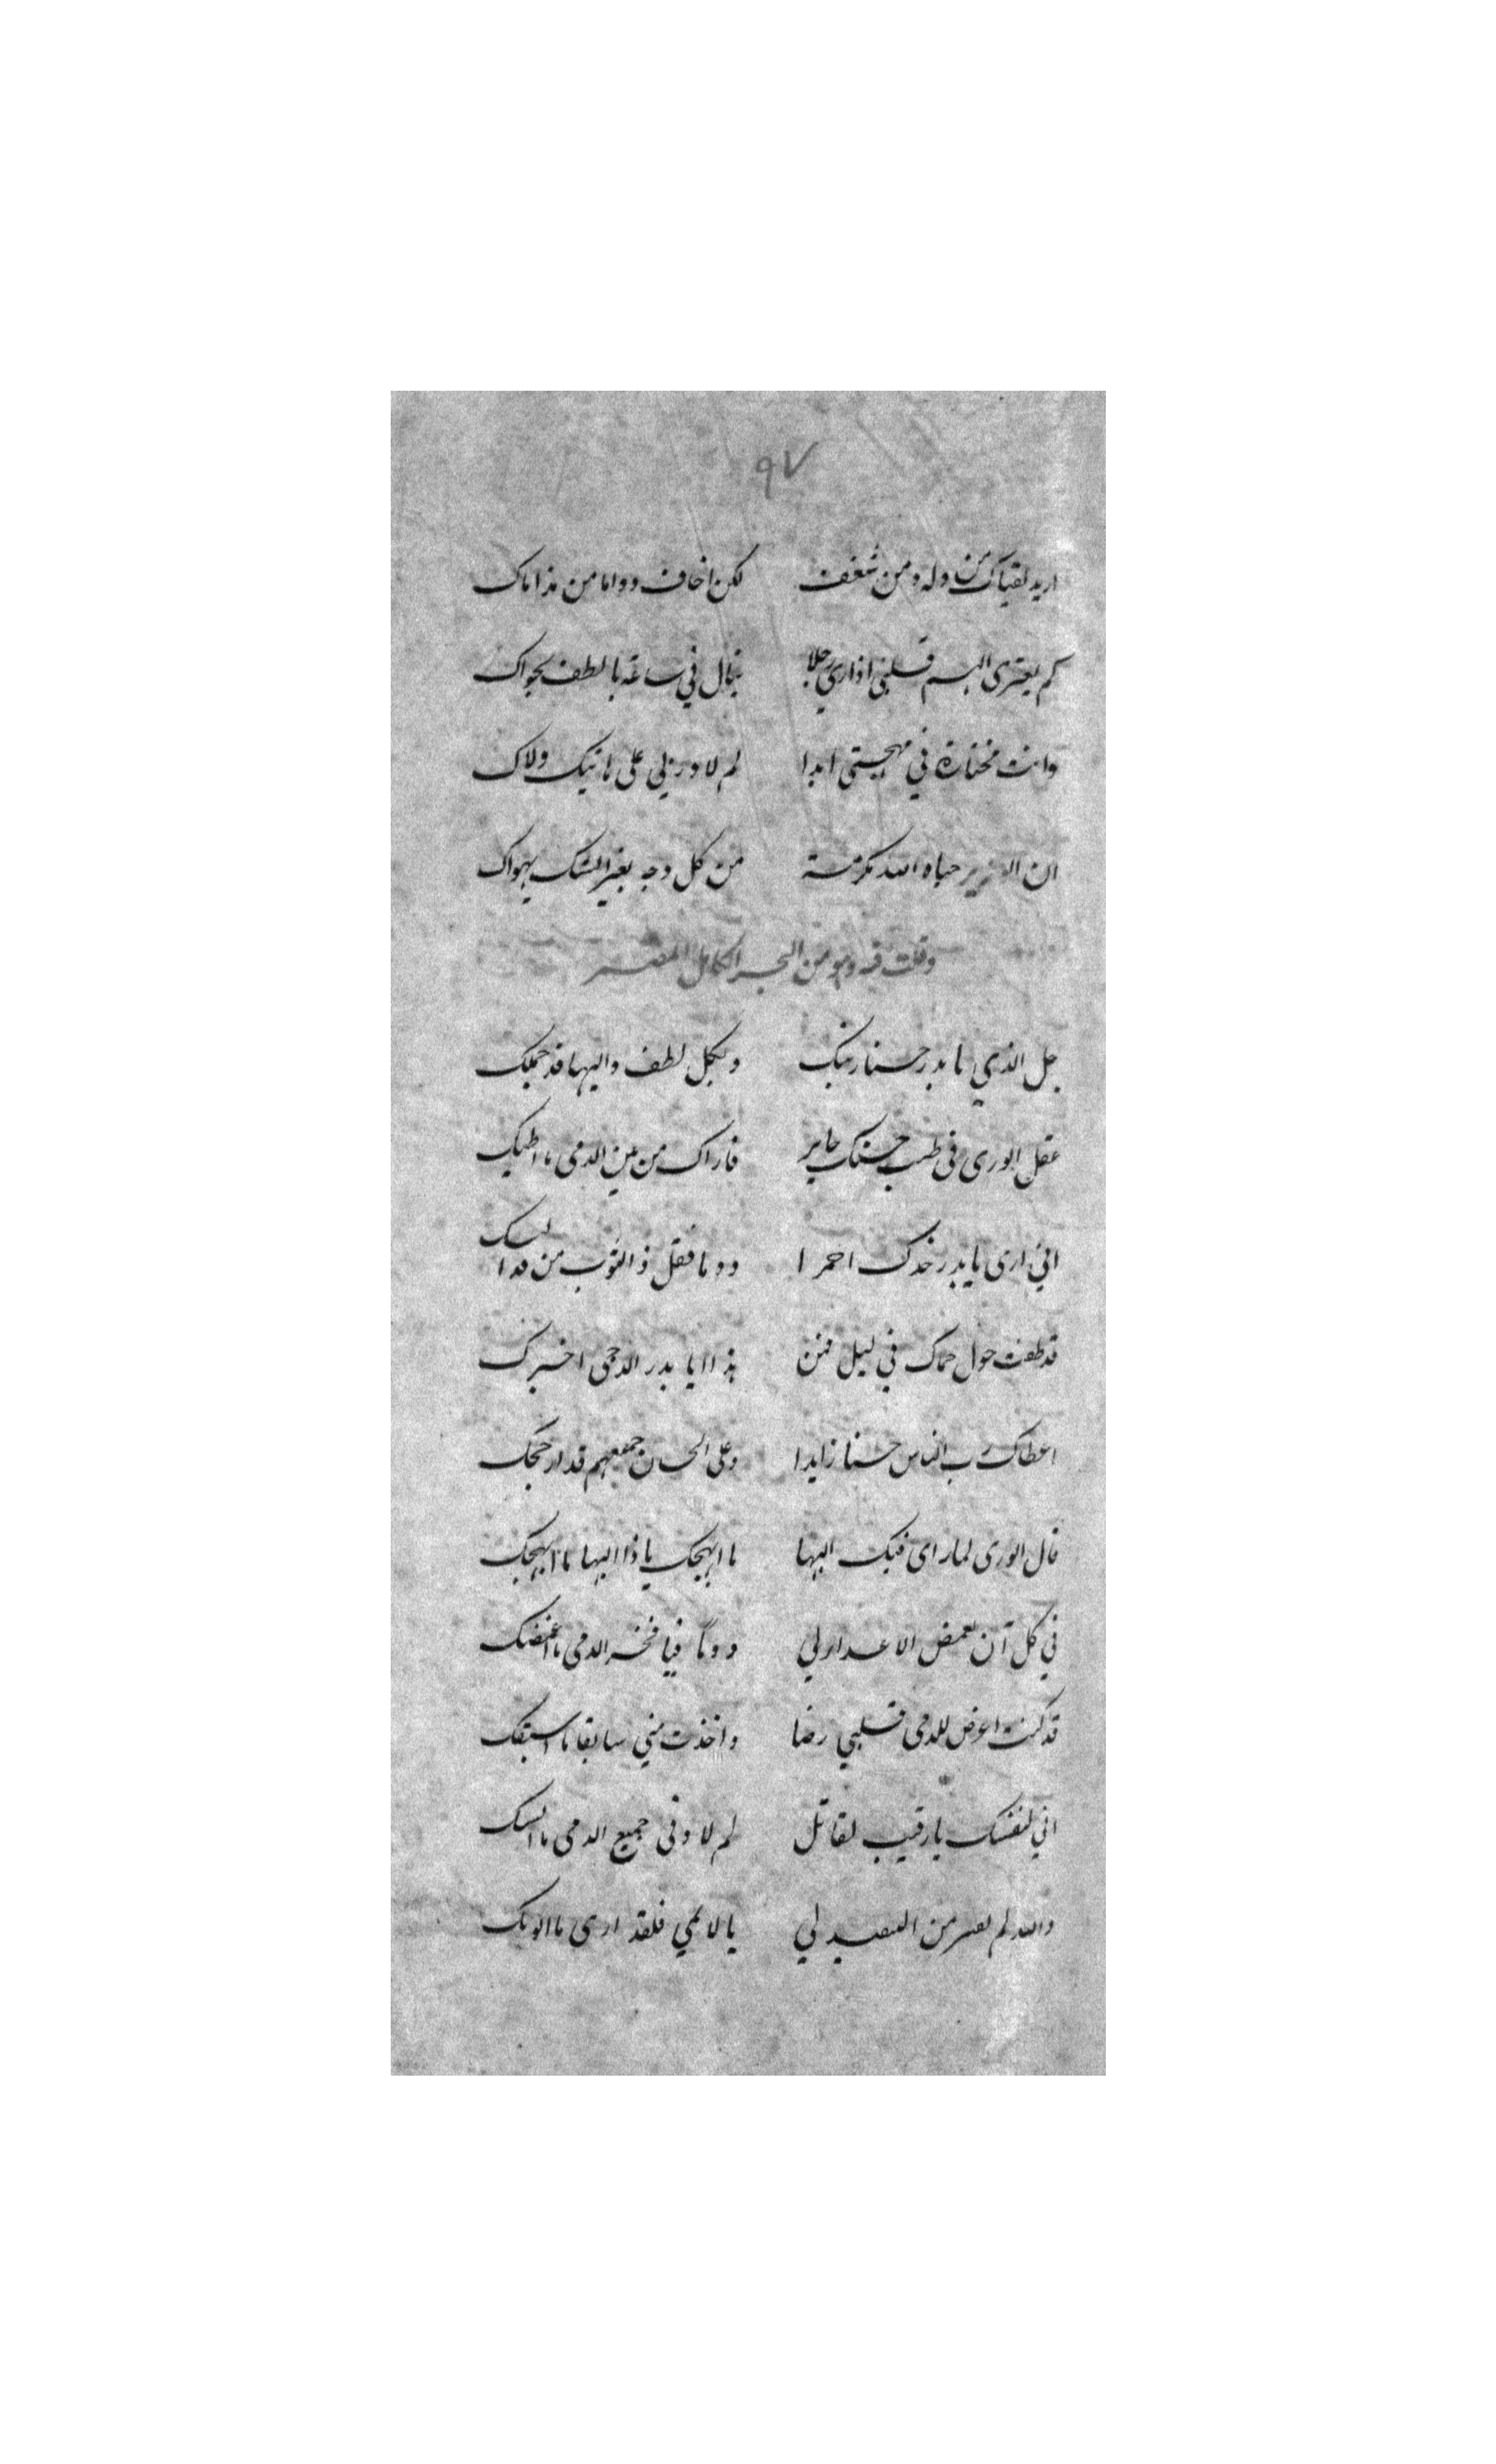 ٩٧
اريد لقياك من وله ومن شغف لكن اخاف دواما من هذاباك
كم يعترى الهم قلبي اذا رى رجلا في ساعة باللطف نجواك
وانت مختارة في مهجتى ابدا لم لا ورنى على هاتيك ولاك
ان العزيز حباه الله مكرمة من كل وجه بغير الشك يهواك
وقلت فيه وهو من البحر الكامل
جل الذي يا بدر حسنا زينك وبكل لطف والبها قد جملك
عقل الورى في حسنك حاير فاراك من بين الدمى ما
اني ارى يا بدر خدك احمرا دوما فقل ذا الثوب من قد
قد طفت حول حماك في ليل فمن هذا يا بدر الدجى اخبرك
اعطاك رب الناس حسنا زايدا وعلى الحسان جميعهم قد ارجحك
قال الورى لما راى فيك البها ما ابهجك يا ذا البها ما ابهجك
في كل آن تغمض الاعدا لي دوما فيا فخر الدمى ما اغمضك
قد كنت اعرض للدمى قلبي رضا واخذت مني سابقا ما اسبقك
اني لنفسك يا رقيب لقاتل لم لا وفى جميع الدمى ما
والله لم من لي يا لائمي فلقد ارى ما